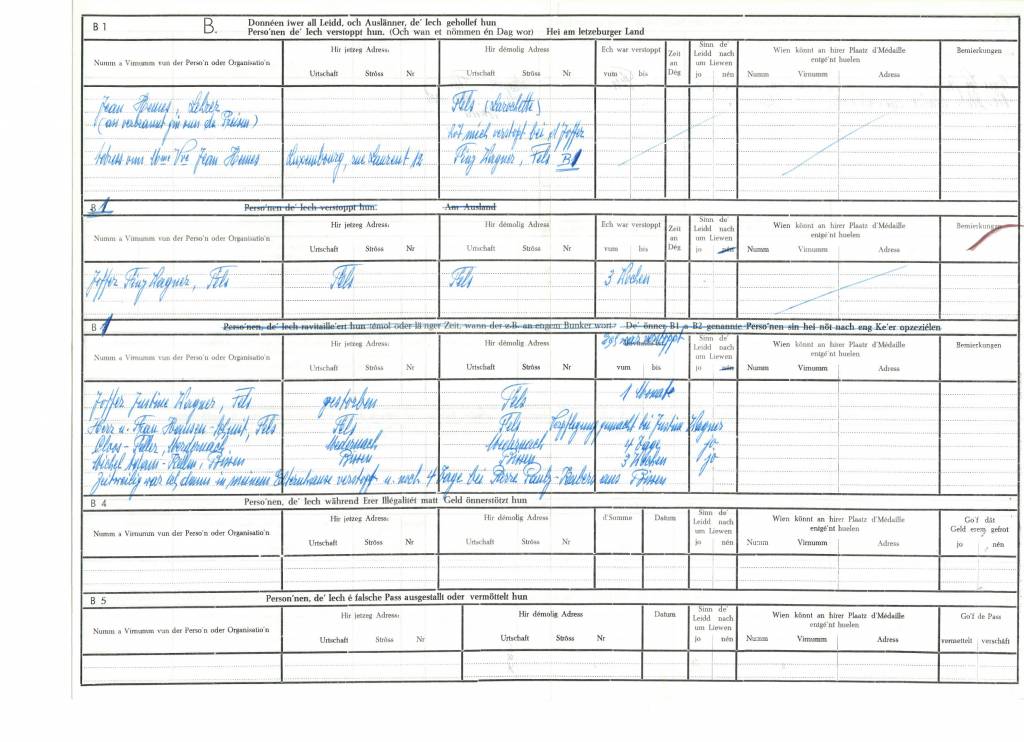 B 1 B. Donnéen iwer all Leidd, och Auslänner, de' Iech gehollef hun
Perso'nen de' Iech verstoppt hun. (Och wan et nömmen én Dag wor) Hei am letzeburger Land
Numm a Virnumm vun der Perso'n oder Organisatio'n Hir jetzeg Adress: Hir démolig Adress Ech war verstoppt Zeit an Dég Sinn de' Leidd nach um Liewen Wien könnt an hirer Plaatz d'Médaille entgé'nt huelen Bemierkungen
Urtschaft Ströss Nr Urtschaft Ströss Nr vum bis jo nén Numm Virnumm Adress
Jean Hemes, Lehrer Fels (Larochette)
(ass verbrannt gin vun de Preisen) hot mech verstopt bei Joffer
Adress vun Mme Vve Jean Hemes Luxembourg, rue Laurent 12 Finy Wagner, Fels B1
B 1 Perso'nen de' Iech verstoppt hun: Am Ausland
Numm a Virnumm vun der Perso'n oder Organisatio'n Hir jetzeg Adress: Hir démolig Adress Ech war verstoppt Zeit an Dég Sinn de' Leidd nach um Liewen Wien könnt an hirer Plaatz d'Médaille entgé'nt huelen Bemierkungen
Urtschaft Ströss Nr Urtschaft Ströss Nr vum bis jo nén Numm Virnumm Adress
Joffer Finy Wagner, Fels Fels Fels 3 Wochen
B 1 Perso'nen, de' Iech ravitaille'ert hun émol oder länger Zeit, wann der z.B. an engem Bunker wort? De' önner B1 a B2 genannte Perso'nen sin hei nöt nach eng Ke'er opzeziélen
Numm a Virnumm vun der Perso'n oder Organisatio'n Hir jetzeg Adress: Hir démolig Adress war verstoppt Sinn de' Leidd nach um Liewen Wien könnt an hirer Plaatz d'Médaille entgé'nt huelen Bemierkungen
Urtschaft Ströss Nr Urtschaft Ströss Nr vum bis jo nén Numm Virnumm Adress
Joffer Justine Wagner, Fels gestorben Fels 1 Monate
Herr u. Frau Fels Fels Verpflegung gemacht bei Justine Wagner
Cloos-Feller, Medernach Medernach Medernach 4 Tage jo
Michel Bissen Bissen Bissen 3 Wochen jo
Zeitweilig war ich dann in meinem Elternhause verstopt u. noch 4 Tage bei Pierre aus Bissen
B 4 Perso'nen, de' Iech während Erer Illégalitét matt Geld önnerstötzt hun
Numm a Virnumm vun der Perso'n oder Organisatio'n Hir jetzeg Adress: Hir démolig Adress d'Somme Datum Sinn de' Leidd nach um Liewen Wien könnt an hirer Plaatz d'Médaille entgé'nt huelen Go'f dât Geld erem gefrot
Urtschaft Ströss Nr Urtschaft Ströss Nr jo nén Numm Virnumm Adress jo nén
B 5 Person'nen, de' Iech é falsche Pass ausgestallt oder vermöttelt hun
Numm a Virnumm vun der Perso'n oder Organisatio'n Hir jetzeg Adress: Hir démolig Adress Datum Sinn de' Leidd nach um Liewen Wien könnt an hirer Plaatz d'Médaille entgé'nt huelen Go'f de Pass
Urtschaft Ströss Nr Urtschaft Ströss Nr jo nén Numm Virnumm Adress vermettelt verschâft